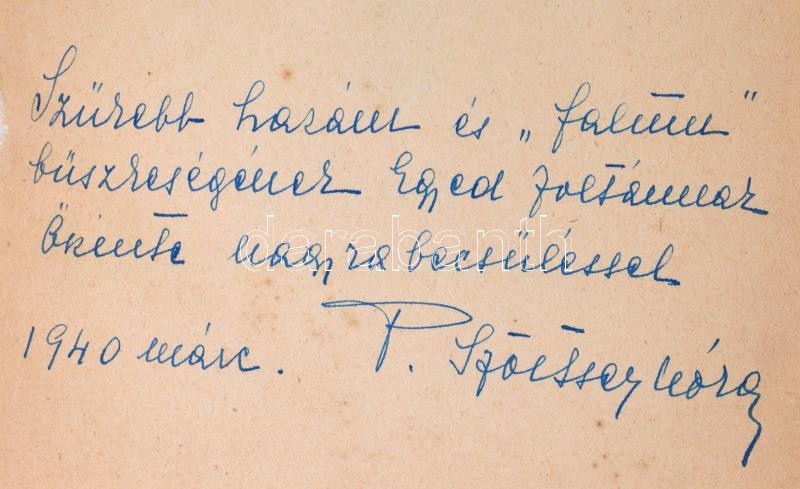 Szűkebb hazám és „falum”
büszkeségének Egyed Zoltánnak
őszinte nagyrabecsüléssel
1940 márc. P. Szőltsey Nóra
darabanth